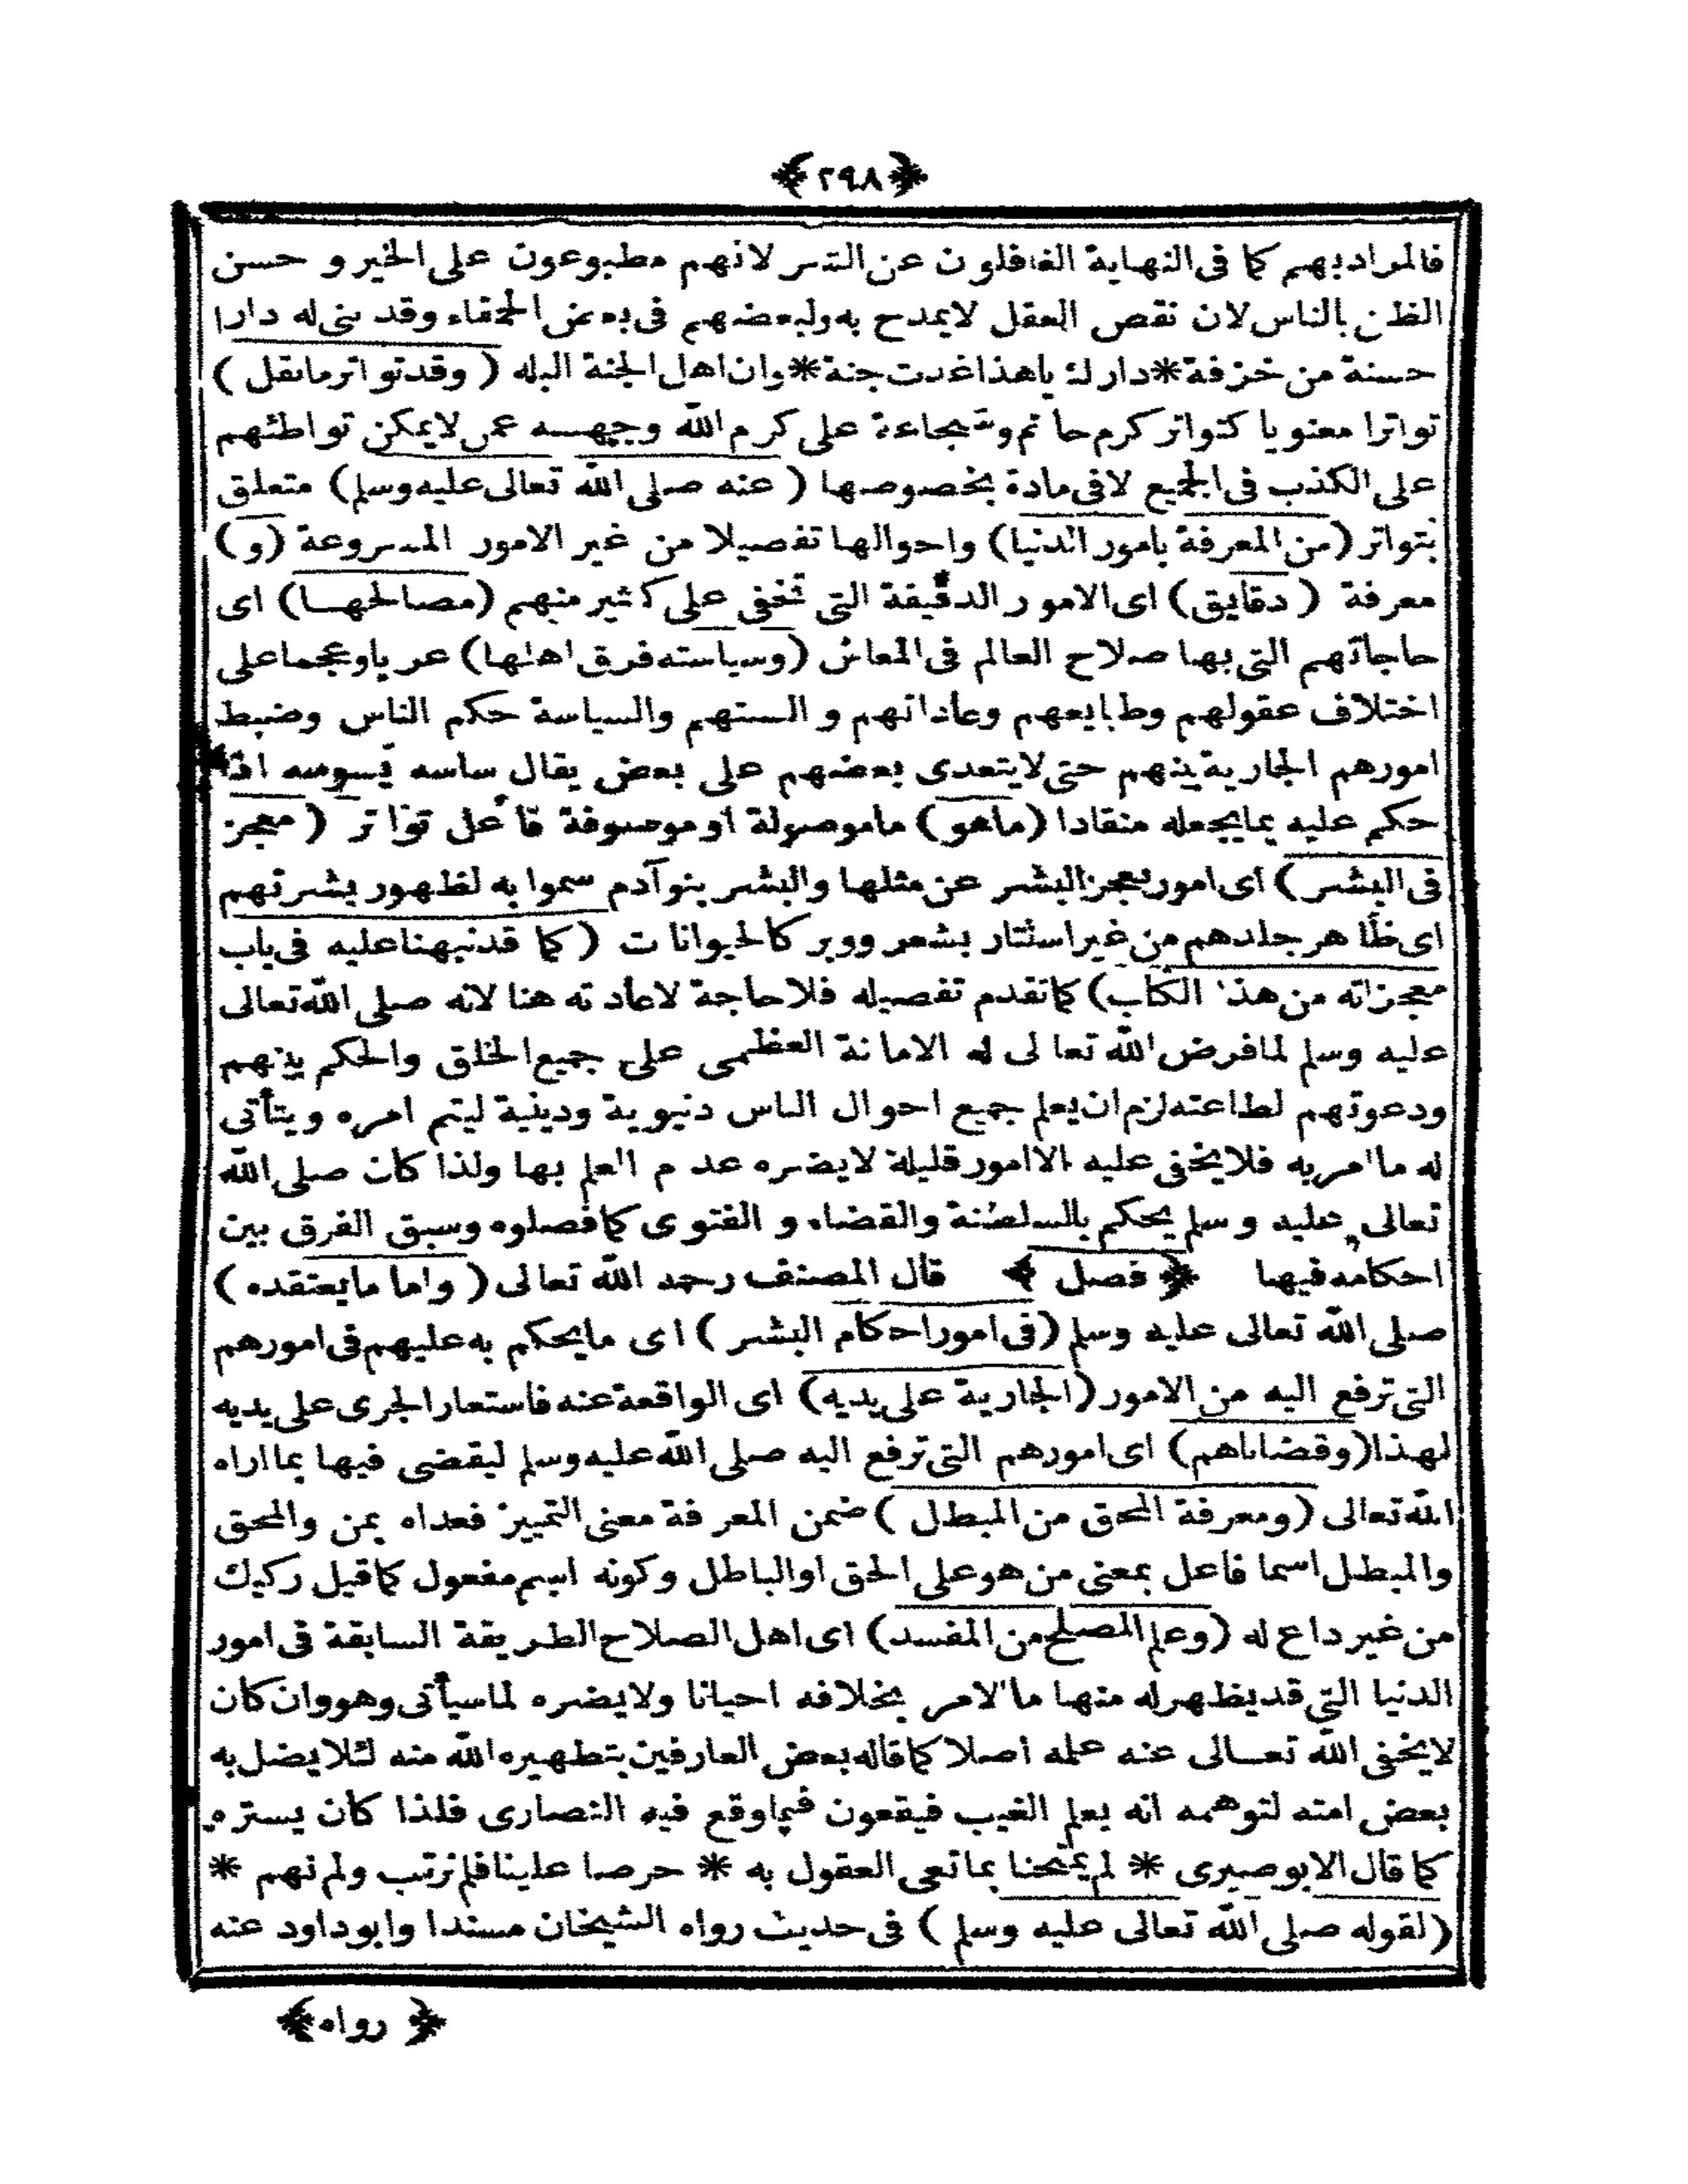 ﴿٢٩٨﴾
فالمراد بهم كما فى النهاية الغافلون عن الشر لانهم مطبوعون على الخير و حسن
الظن بالناس لان نقص العقل لايمدح به ولبعضهم فى بعض الحمقاء وقد بنى له دارا
حسنة من خزفة * دار لك ياهذا غدت جنة * وان اهل الجنة البله ( وقدتواتر مانقل )
تواترا معنويا كتواتر كرم حاتم وشجاعة على كرم الله وجهه عمن لايمكن تواطئهم
على الكذب فى الجميع لافى مادة بخصوصها ( عنه صلى الله تعالى عليه وسلم) متعلق
بتواتر (من المعرفة بامور الدنيا) واحوالها تفصيلا من غير الامور المشروعة (و)
معرفة ( دقايق) اى الامور الدقيقة التى تخفى على كثير منهم (مصالحها) اى
حاجاتهم التى بها صلاح العالم فى المعاش (وسياسته فرق اهلها) عربا وعجما على
اختلاف عقولهم وطبايعهم وعاداتهم و السنتهم والسياسة حكم الناس وضبط
امورهم الجارية بينهم حتى لايتعدى بعضهم على بعض يقال ساسه يسوسه اذا
حكم عليه بمايجعله منقادا (ماهو) ماموصولة او موصوفة فاعل تواتر ( معجز
فى البشر ) اى امور يعجز البشر عن مثلها والبشر بنوآدم سموا به لظهور بشرتهم
اى ظاهر جلدهم من غير استتار بشعر ووبر كالحيوانات ( كما قدنبهنا عليه فى باب
معجزاته من هذا الكتاب) كما تقدم تفصيله فلا حاجة لاعادته هنا لانه صلى الله تعالى
عليه وسلم لمافرض الله تعالى له الامانة العظمى على جميع الخلق والحكم بينهم
ودعوتهم لطاعته لزم ان يعلم جميع احوال الناس دنيوية ودينية ليتم امره ويتأتى
له ما امر به فلايخفى عليه الاامور قليلة لايضره عدم العلم بها ولذا كان صلى الله
تعالى عليه وسلم يحكم بالسلطنة والقضاء و الفتوى كما فصلوه وسبق الفرق بين
احكامه فيها ﴿ فصل ﴾ قال المصنف رحمه الله تعالى ( واما مايعتقده )
صلى الله تعالى عليه وسلم (فى امور احكام البشر ) اى مايحكم به عليهم فى امورهم
التى ترفع اليه من الامور (الجارية على يديه) اى الواقعة عنه فاستعار الجرى على يديه
لهذا (وقضاياهم) اى امورهم التى ترفع اليه صلى الله عليه وسلم ليقضى فيها بما اراه
الله تعالى (ومعرفة المحق من المبطل ) ضمن المعرفة معنى التمييز فعداه بمن والمحق
والمبطل اسما فاعل بمعنى من هو على الحق او الباطل وكونه اسم مفعول كما قيل ركيك
من غير داع له (وعلم المصلح من المفسد) اى اهل الصلاح الطريقة السابقة فى امور
الدنيا التى قد يظهر له منها ما الامر بخلافه احيانا ولايضره لما سيأتى وهو وان كان
لايخفى الله تعالى عنه علمه اصلا كما قاله بعض العارفين بتطهيره الله منه لئلا يضل به
بعض امته لتوهمه انه يعلم الغيب فيقعون فيما وقع فيه النصارى فلذا كان يستره
كما قال الابوصيرى * لم يمتحنا بما تعى العقول به * حرصا علينا فلم نرتب ولم نهم *
(لقوله صلى الله تعالى عليه وسلم ) فى حديث رواه الشيخان مسندا وابوداود عنه
﴿ رواه ﴾